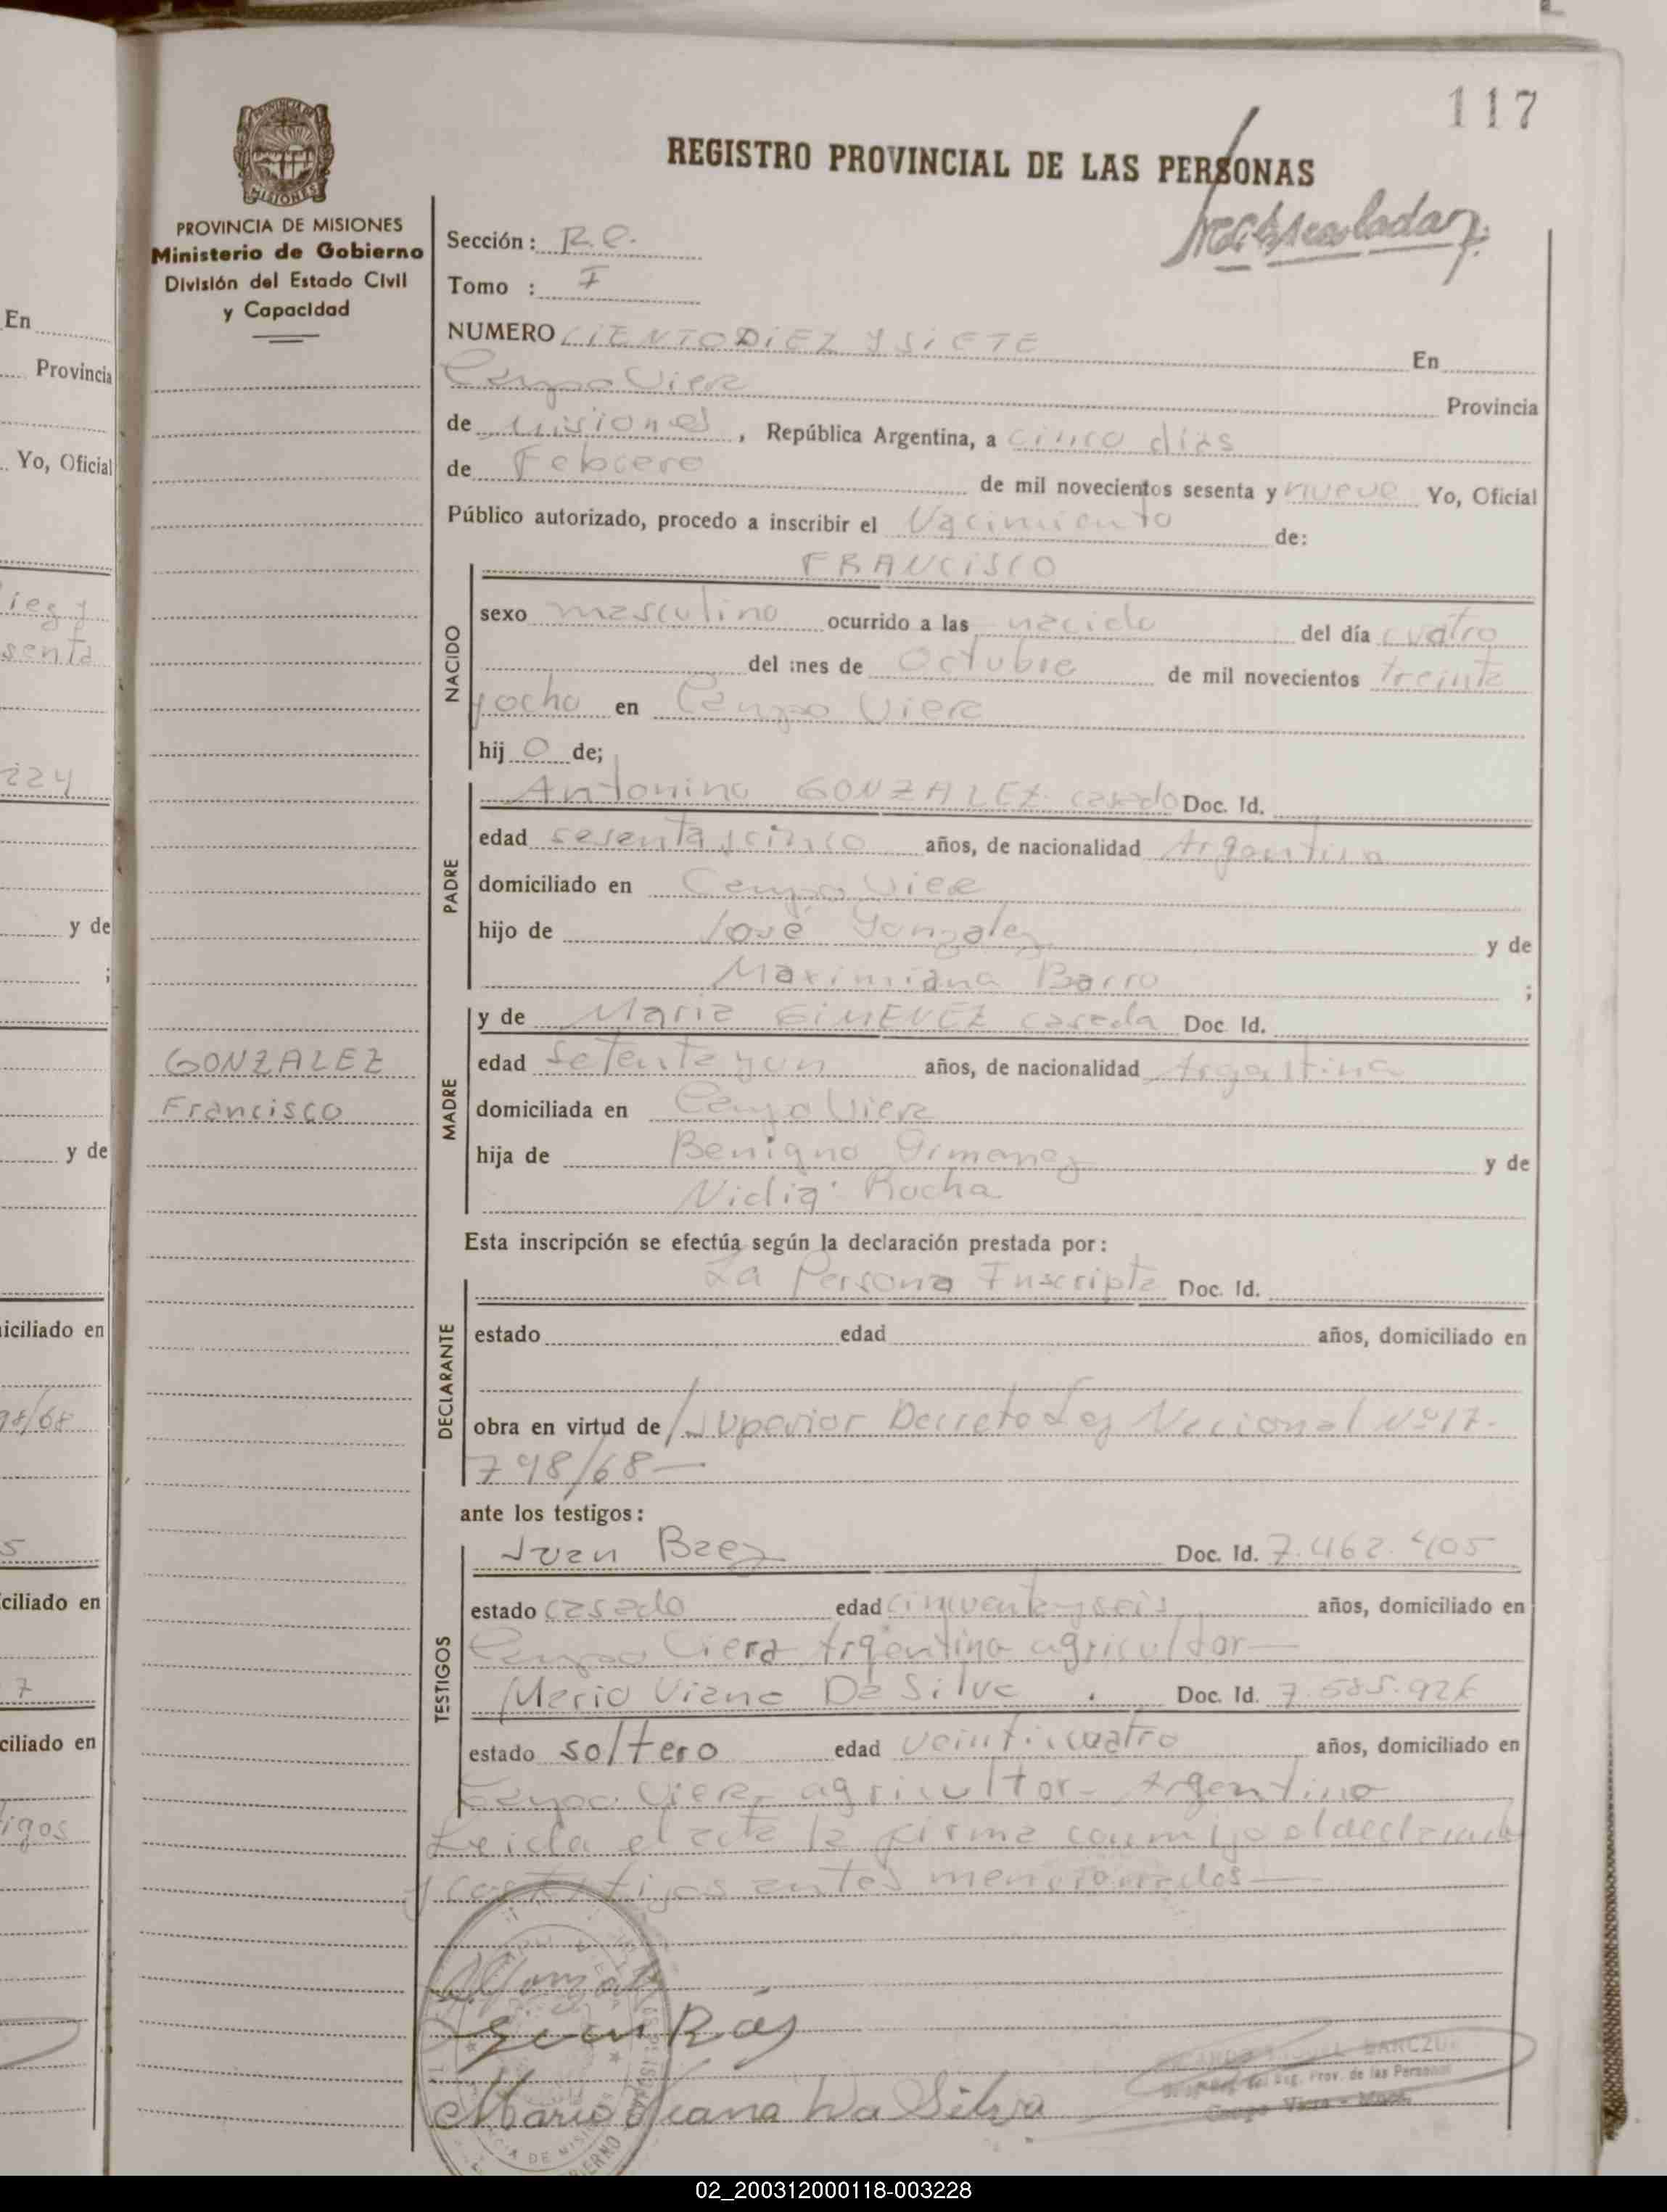 117
PROVINCIA DE MISIONES
Ministerio de Gobierno
División del Estado Civil
y Capacidad
REGISTRO PROVINCIAL DE LAS PERSONAS
Sección: R.C.
Tomo : I
NUMERO CIENTO DIEZ Y SIETE En
Campo Viera Provincia
de Misiones, República Argentina, a cinco dias
de Febrero de mil novecientos sesenta y nueve Yo, Oficial
Público autorizado, procedo a inscribir el Nacimiento de:
FRANCISCO
NACIDO
sexo masculino ocurrido a las nacido del día cuatro
del mes de Octubre de mil novecientos treinta
y ocho en Campo Viera
hijo de;
PADRE
Antonino GONZALEZ casado Doc. Id.
edad sesenta y cinco años, de nacionalidad Argentina
domiciliado en Campo Viera
hijo de José Gonzalez y de
Maximiana Barro ;
MADRE
y de Maria GIMENEZ casada Doc Id.
edad setenta y un años, de nacionalidad Argentina
domiciliada en Campo Viera
hija de Benigno Gimenez y de
Nidia Rocha
GONZALEZ
Francisco
Esta inscripción se efectúa según la declaración prestada por:
DECLARANTE
La Persona Inscripta Doc. Id.
estado edad años, domiciliado en
obra en virtud de / Superior Decreto Ley Nacional Nº 17.
798/68—
ante los testigos:
TESTIGOS
Juan Baez Doc. Id. 7.462.405
estado casado edad cincuenta y seis años, domiciliado en
Campo Viera Argentino agricultor—
Mario Viana Da Silva. Doc. Id. 7.585.926
estado soltero edad veinticuatro años, domiciliado en
Campo Viera, agricultor - Argentino
Leida el acta la firma conmigo el declarante
y los testigos antes mencionados—
Mario Viana Da Silva
Reg. Prov. de las Personas
Campo Viera - Mnes.
En
Provincia
Yo, Oficial
224
y de
;
y de
iciliado en
98/68
5
ciliado en
7
ciliado en
igos
02_200312000118-003228